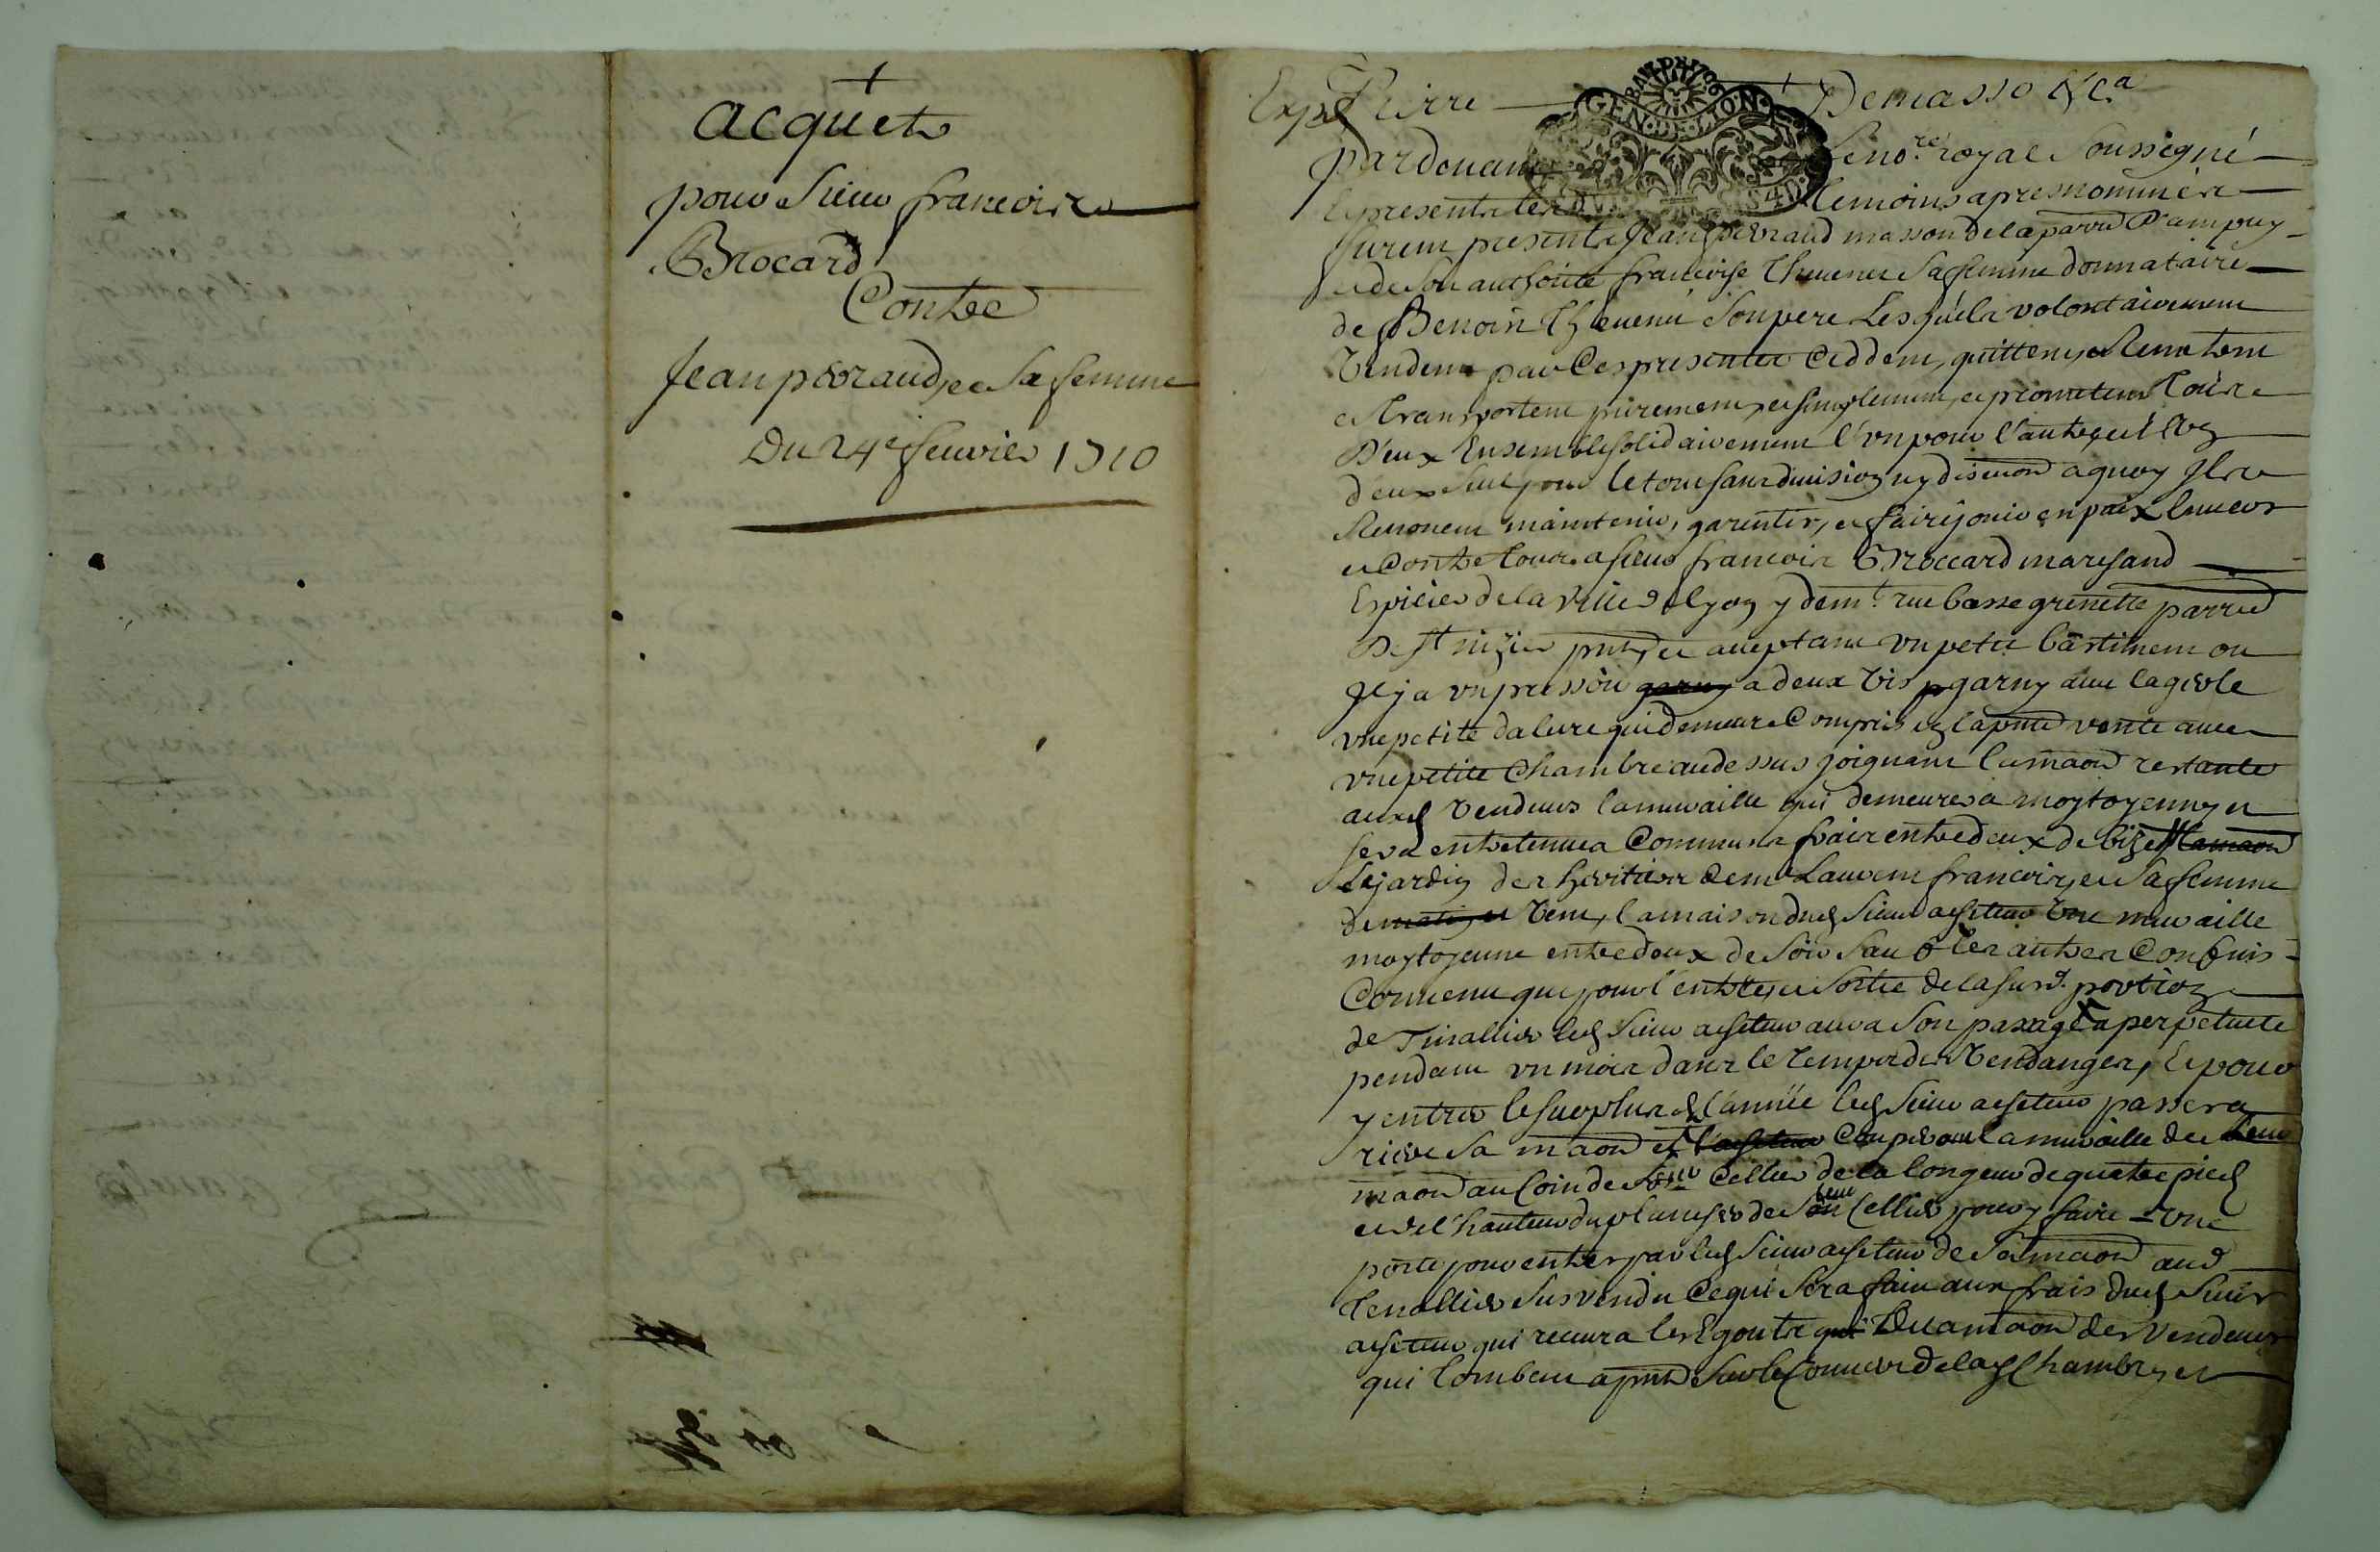 +
acquet
pour Sieur francois
Brocard
Contre
Jean pevraud, et Sa femme
Du 24e fevrier 1710
Expé Pierre Demasso &c.a
GEN. DE. LION.
pardevant le no.re royal Soussigné
Et presents les temoins apres nommés
furent presents Jean pevraud masson de la parr.e D'ampuy
et de Son authorité francoise Thevenet Sa femme donnataire
de Benoit Thevenet Son pere Lesquels volontairement
Vendent par Ces presentes Ceddent, quittent, et Remettent
et transportent purement, et simplement, et promettent tous
D'eux Ensemble solidairement l'un pour l'autre, et l'Un
d'eux Seul pour le tout sans division ny discution a quoy Ils
Renoncent maintenir, garentir, et faire jouir en paix Envers
et Contre tous a sieur francois Broccard marchand
Espicier de la Ville de lyon y dem.t rue basse grenette parr.e
De St nizier pnt, et aceptant un petit bastiment ou
Il y a un pressoir garny a deux Vis garny avec la
une petite qui demeure Compris en la pnte vente avec
une petite Chambre au dessus joignant la maon restante
auxd Vendeurs la muraille qui demeurera moytoyenne, et
sera entretenue a Communs frais entre deux de bize la maon
Le jardin des heritiers de m.e Laurent francois, et Sa femme
de matin, et Vent, la maison dud Sieur acheteur Une muraille
moytoyenne entre deux de Soir Sauf les autres Confins
Convenu que pour l'entrée, et Sortie de la susd. portion
de Tinallier led Sieur acheteur aura Son passage a perpetuité
pendant un mois dans le temps des Vendanges, Et pour
y entrer le surplus de l'année led Sieur acheteur passera
riere Sa maon et l'acheteur Coupera la muraille de Leur
maon au Coin de Leur Cellier de la longeur de quatre pied
et de l'hauteur du plancher de Leur Cellier pour y faire Une
porte pour entrer par led Sieur acheteur de Sa maon aud
tenallier Sus vendu Ce qui Sera fait aux frais dud Sieur
acheteur qui recevra les Egouts qui De la maon des Vendeurs
qui tombent a pnt Sur le Couvert de lad Chambre, et